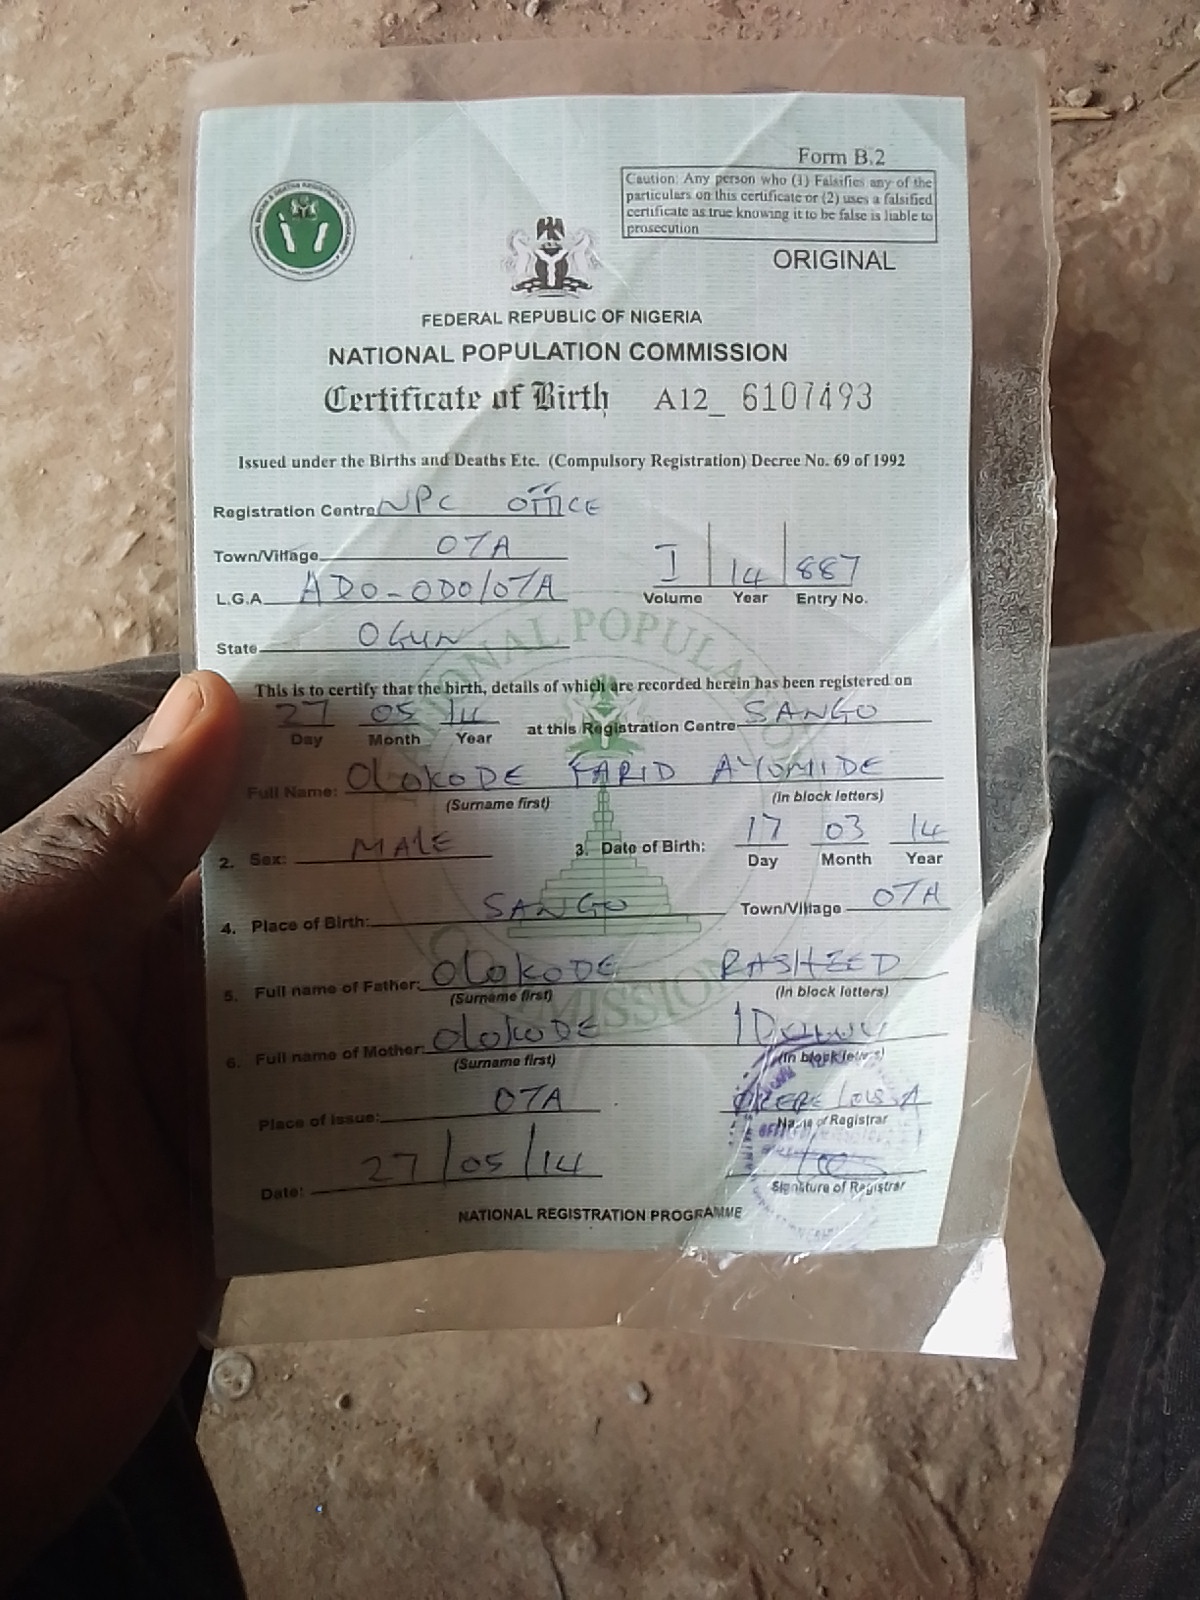 Form B.2
Caution: Any person who (1) Falsifies any of the
particulars on this certificate or (2) uses a falsified
certificate as true knowing it to be false is liable to
prosecution
ORIGINAL
FEDERAL REPUBLIC OF NIGERIA
NATIONAL POPULATION COMMISSION
Certificate of Birth A12_ 6107493
Issued under the Births and Deaths Etc. (Compulsory Registration) Decree No. 69 of 1992
Registration Centre NPC OFFICE
Town/Village OTA
L.G.A ADO-ODO/OTA
I 14 887
Volume Year Entry No.
State OGUN
This is to certify that the birth, details of which are recorded herein has been registered on
27 05 14 at this Registration Centre SANGO
Day Month Year
Full Name: OLOKODE FARID AYOMIDE
(Surname first) (In block letters)
2. Sex: MALE 3. Date of Birth: 17 03 14
Day Month Year
4. Place of Birth: SANGO Town/Village OTA
5. Full name of Father: OLOKODE RASHEED
(Surname first) (In block letters)
6. Full name of Mother: OLOKODE IDOWU
(Surname first) (In block letters)
Place of Issue: OTA
Name of Registrar
Date: 27/05/14
Signature of Registrar
NATIONAL REGISTRATION PROGRAMME
NATIONAL POPULATION COMMISSION